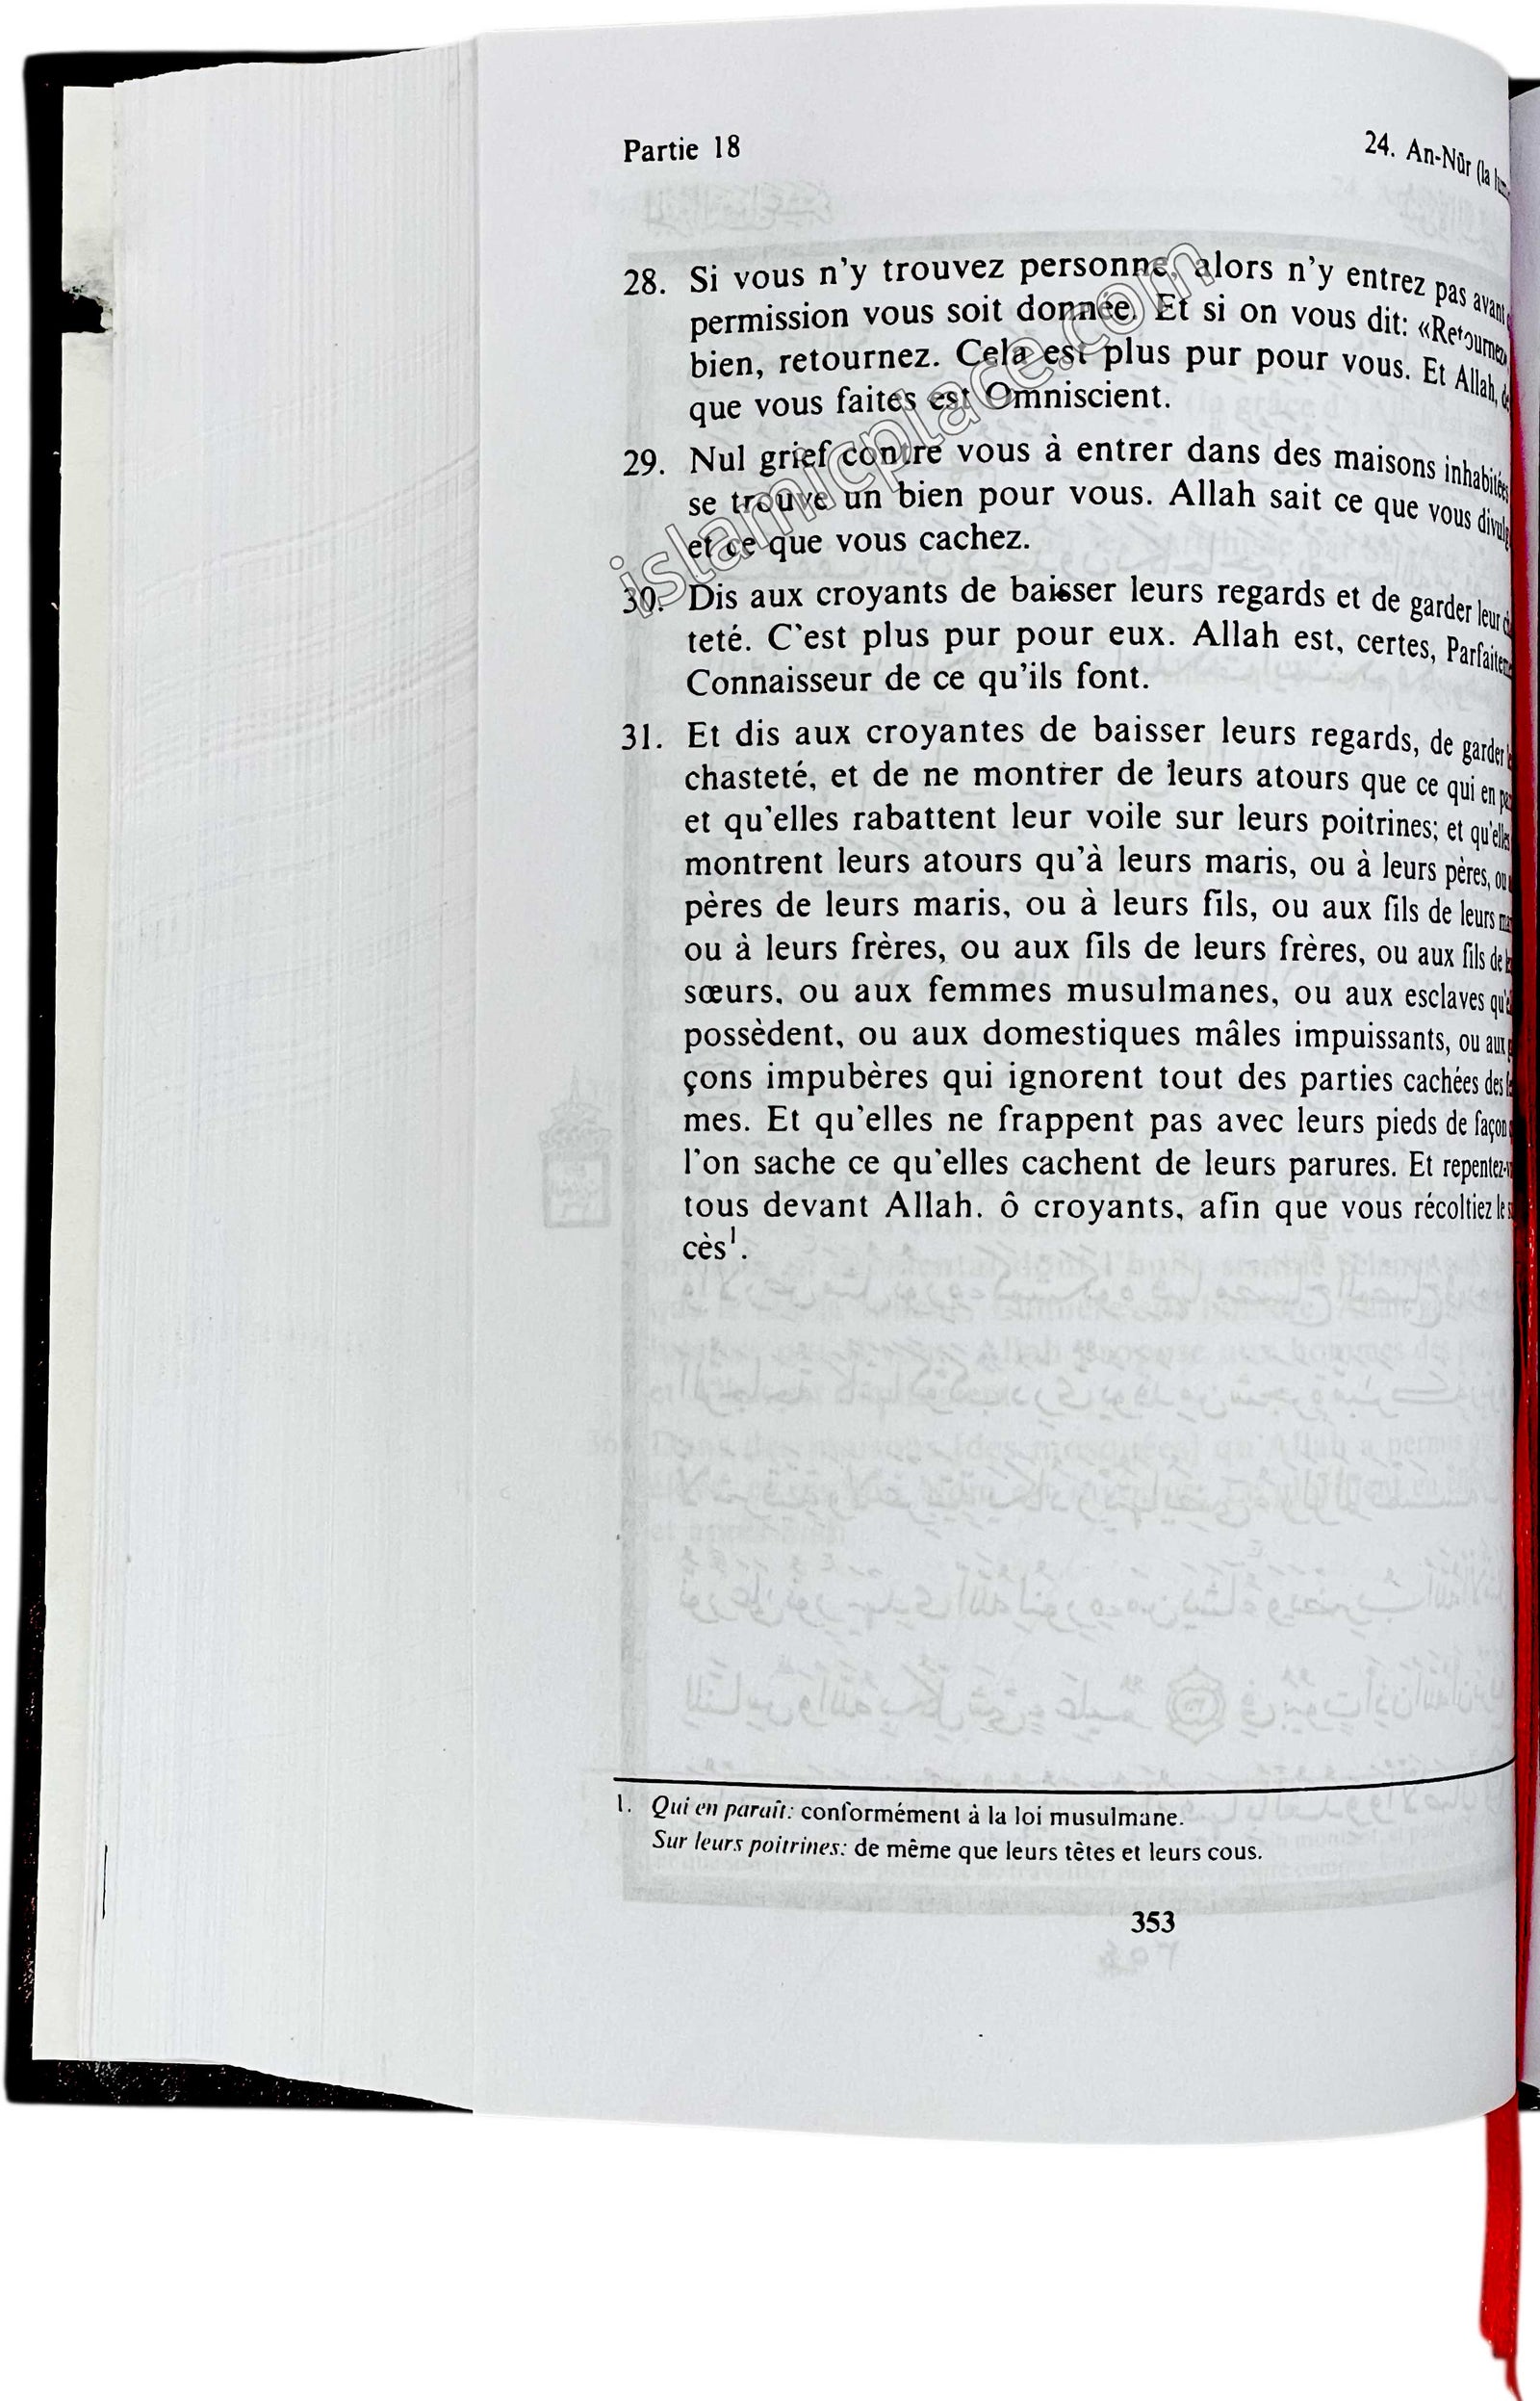 Partie 18
24. An-Nûr (la
28. Si vous n'y trouvez personne, alors n'y entrez pas avant
permission vous soit donnée. Et si on vous dit: «Retournez»,
bien, retournez. Cela est plus pur pour vous. Et Allah, de
que vous faites est Omniscient.
29. Nul grief contre vous à entrer dans des maisons inhabitées
se trouve un bien pour vous. Allah sait ce que vous divulg
et ce que vous cachez.
30. Dis aux croyants de baisser leurs regards et de garder leur
teté. C'est plus pur pour eux. Allah est, certes, Parfaitem
Connaisseur de ce qu'ils font.
31. Et dis aux croyantes de baisser leurs regards, de garder
chasteté, et de ne montrer de leurs atours que ce qui en
et qu'elles rabattent leur voile sur leurs poitrines; et qu'elles
montrent leurs atours qu'à leurs maris, ou à leurs pères, ou
pères de leurs maris, ou à leurs fils, ou aux fils de leurs
ou à leurs frères, ou aux fils de leurs frères, ou aux fils de
sœurs, ou aux femmes musulmanes, ou aux esclaves
possèdent, ou aux domestiques mâles impuissants, ou aux
çons impubères qui ignorent tout des parties cachées des
mes. Et qu'elles ne frappent pas avec leurs pieds de façon
l'on sache ce qu'elles cachent de leurs parures. Et repentez-
tous devant Allah. ô croyants, afin que vous récoltiez le
cès¹.
1. Qui en paraît: conformément à la loi musulmane.
Sur leurs poitrines: de même que leurs têtes et leurs cous.
353
islamicplace.com